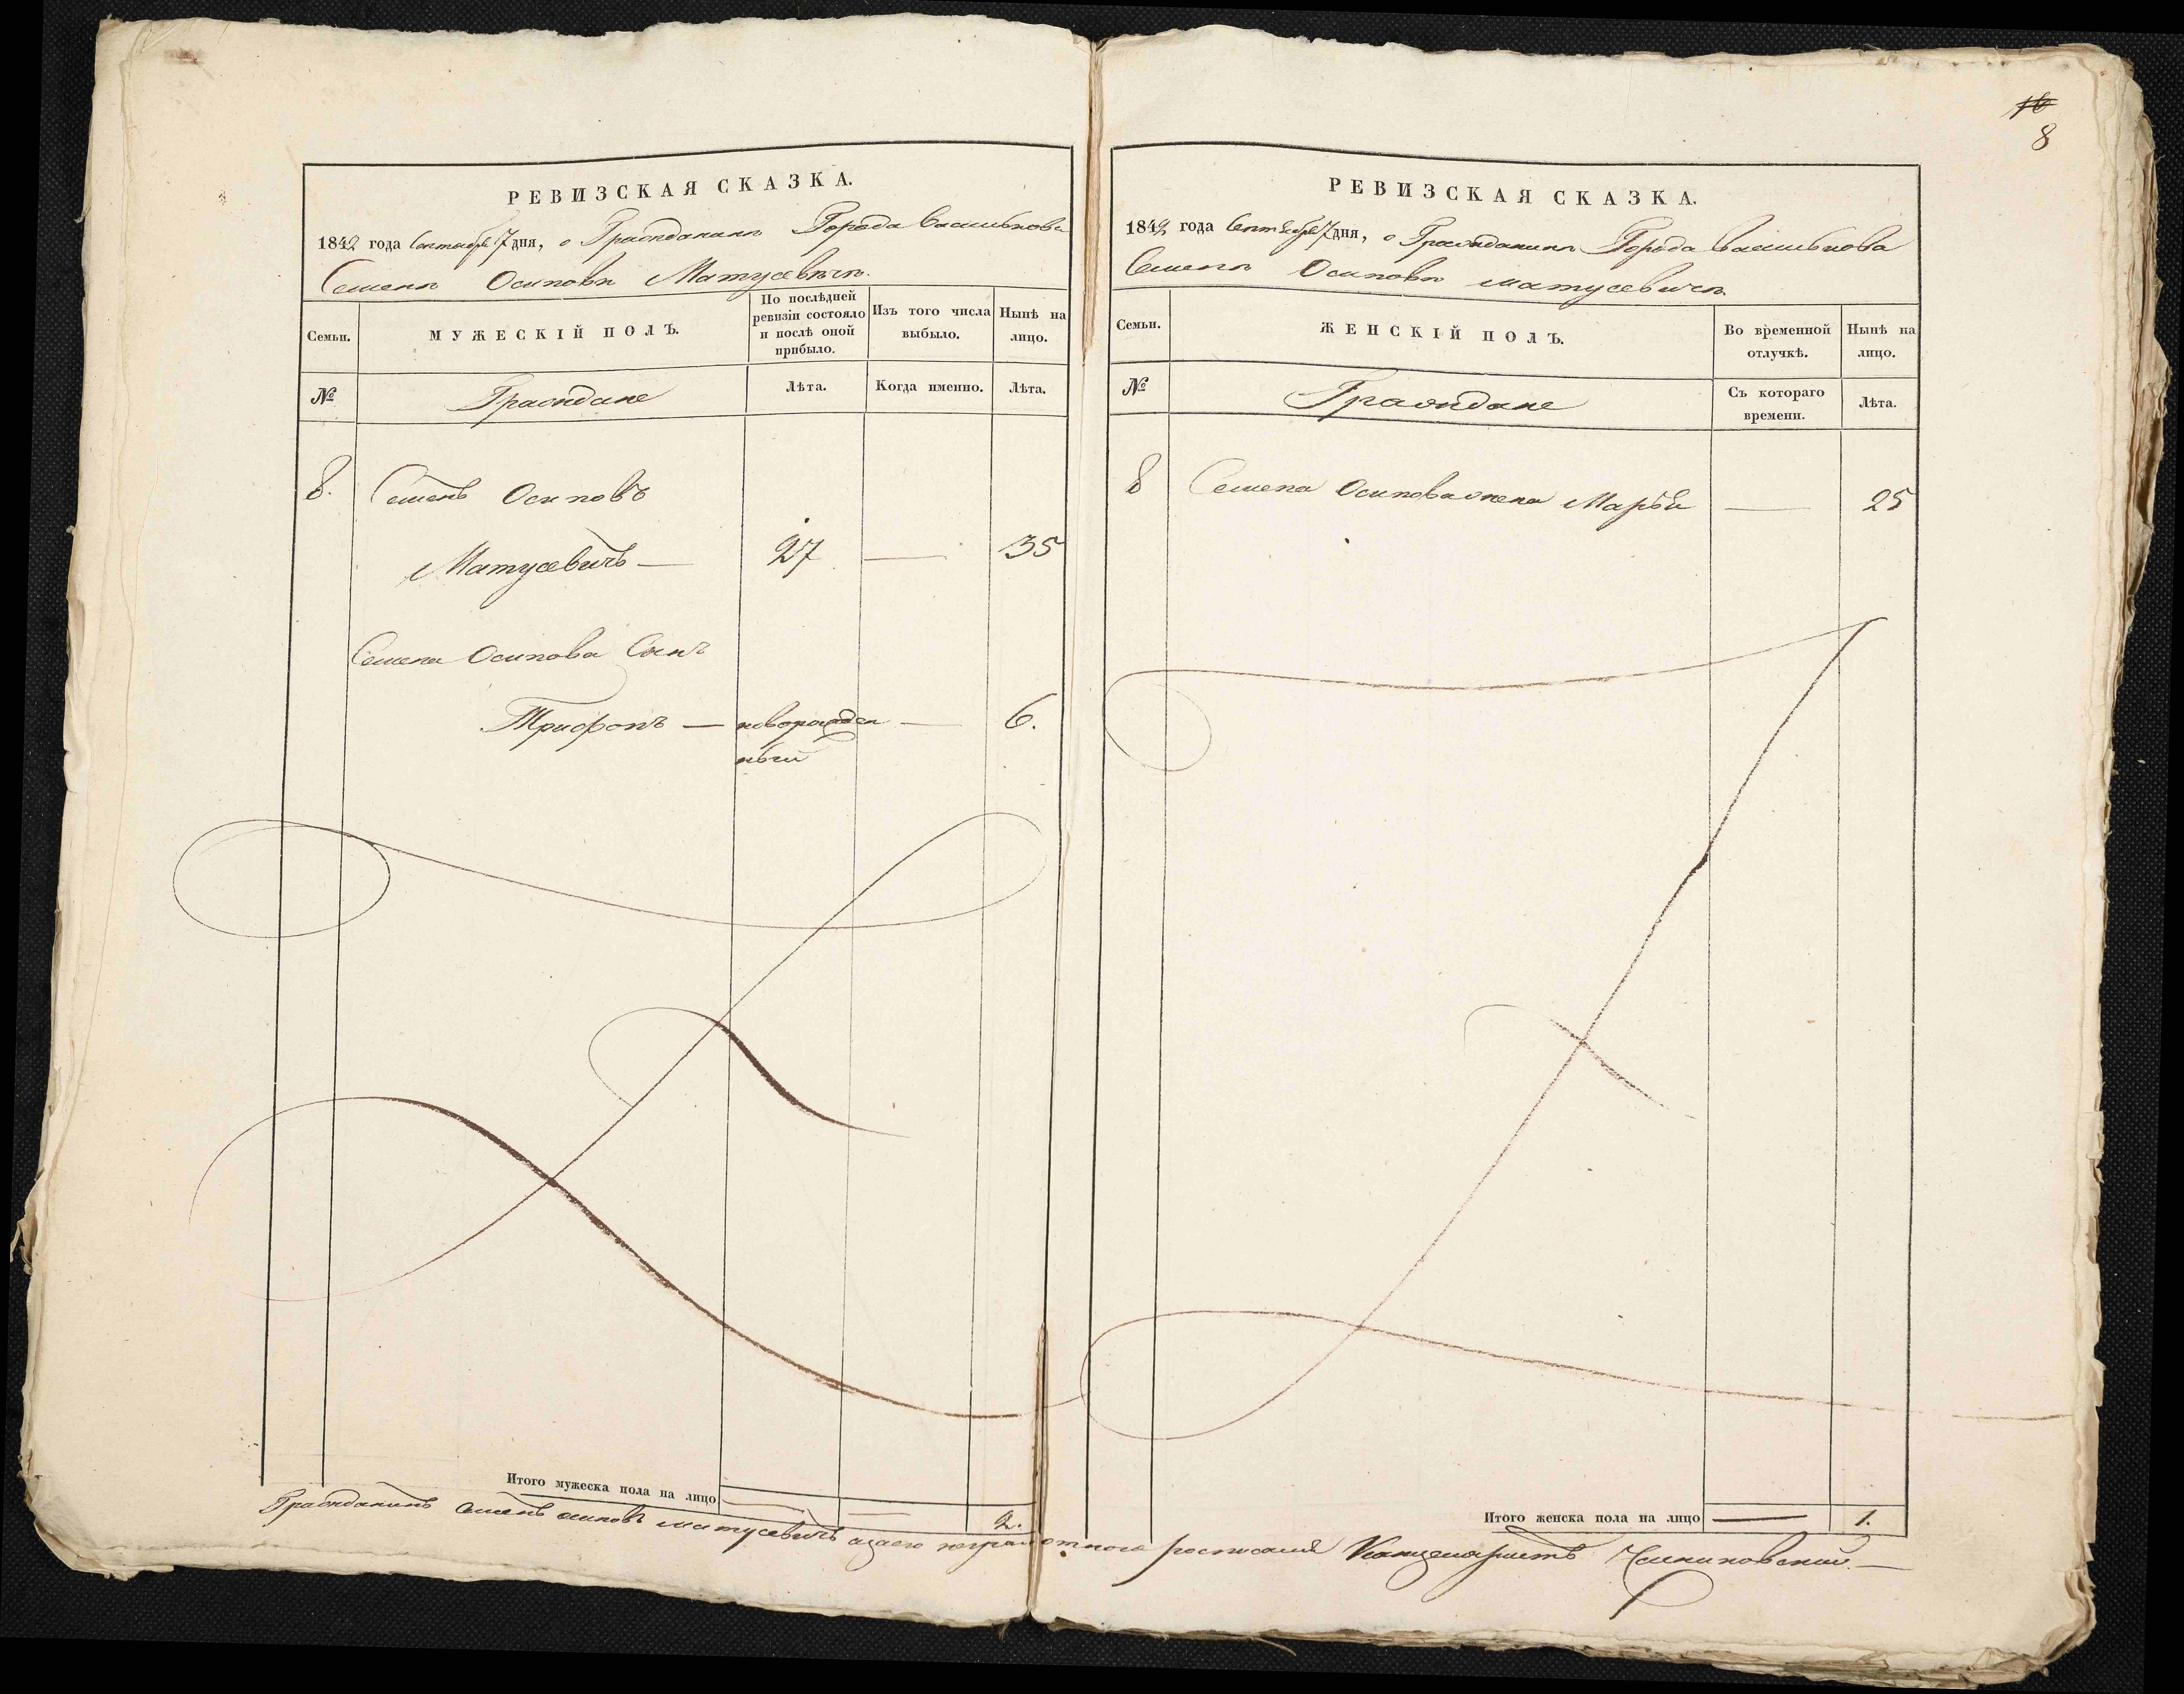 РЕВИЗСКАЯ СКАЗКА.
1842 года Сентября 7 дня, о Гражданинѣ Города Василькова
Семенѣ Осиповѣ Матусевичѣ.
Семьи.
МУЖЕСКІЙ ПОЛЪ.
По послѣдней ревизіи состояло и послѣ оной прибыло.
Изъ того числа выбыло.
Нынѣ на лицо.
№
Граждане
Лѣта.
Когда именно.
Лѣта.
8. Семенъ Осиповъ
Матусевичъ — 27 — 35
Семена Осипова Сынъ
Трифонъ — новорожден — 6.
ный
Итого мужеска пола на лицо — — 2.
16
8
РЕВИЗСКАЯ СКАЗКА.
1842 года Сентября 7 дня, о Гражданинѣ Города Василькова
Семенѣ Осиповѣ Матусевичѣ
Семьи.
ЖЕНСКІЙ ПОЛЪ.
Во временной отлучкѣ.
Нынѣ на лицо.
№
Граждане
Съ котораго времени.
Лѣта.
8 Семена Осипова жена Марья — 25
Итого женска пола на лицо — 1.
Гражданинъ Семенъ Осиповъ Матусевичъ а заего неграмотного росписался Канцеляристъ